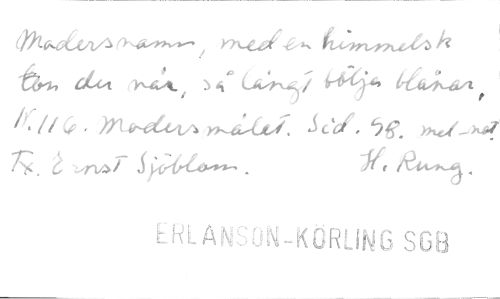 Modersnamn, med en himmelsk
ton du når, så långt bölja blånar,
N. 116. Modersmålet. Sid. 98. mel-not.
Tx. Ernst Sjöblom. H. Rung.
ERLANSON-KÖRLING SGB